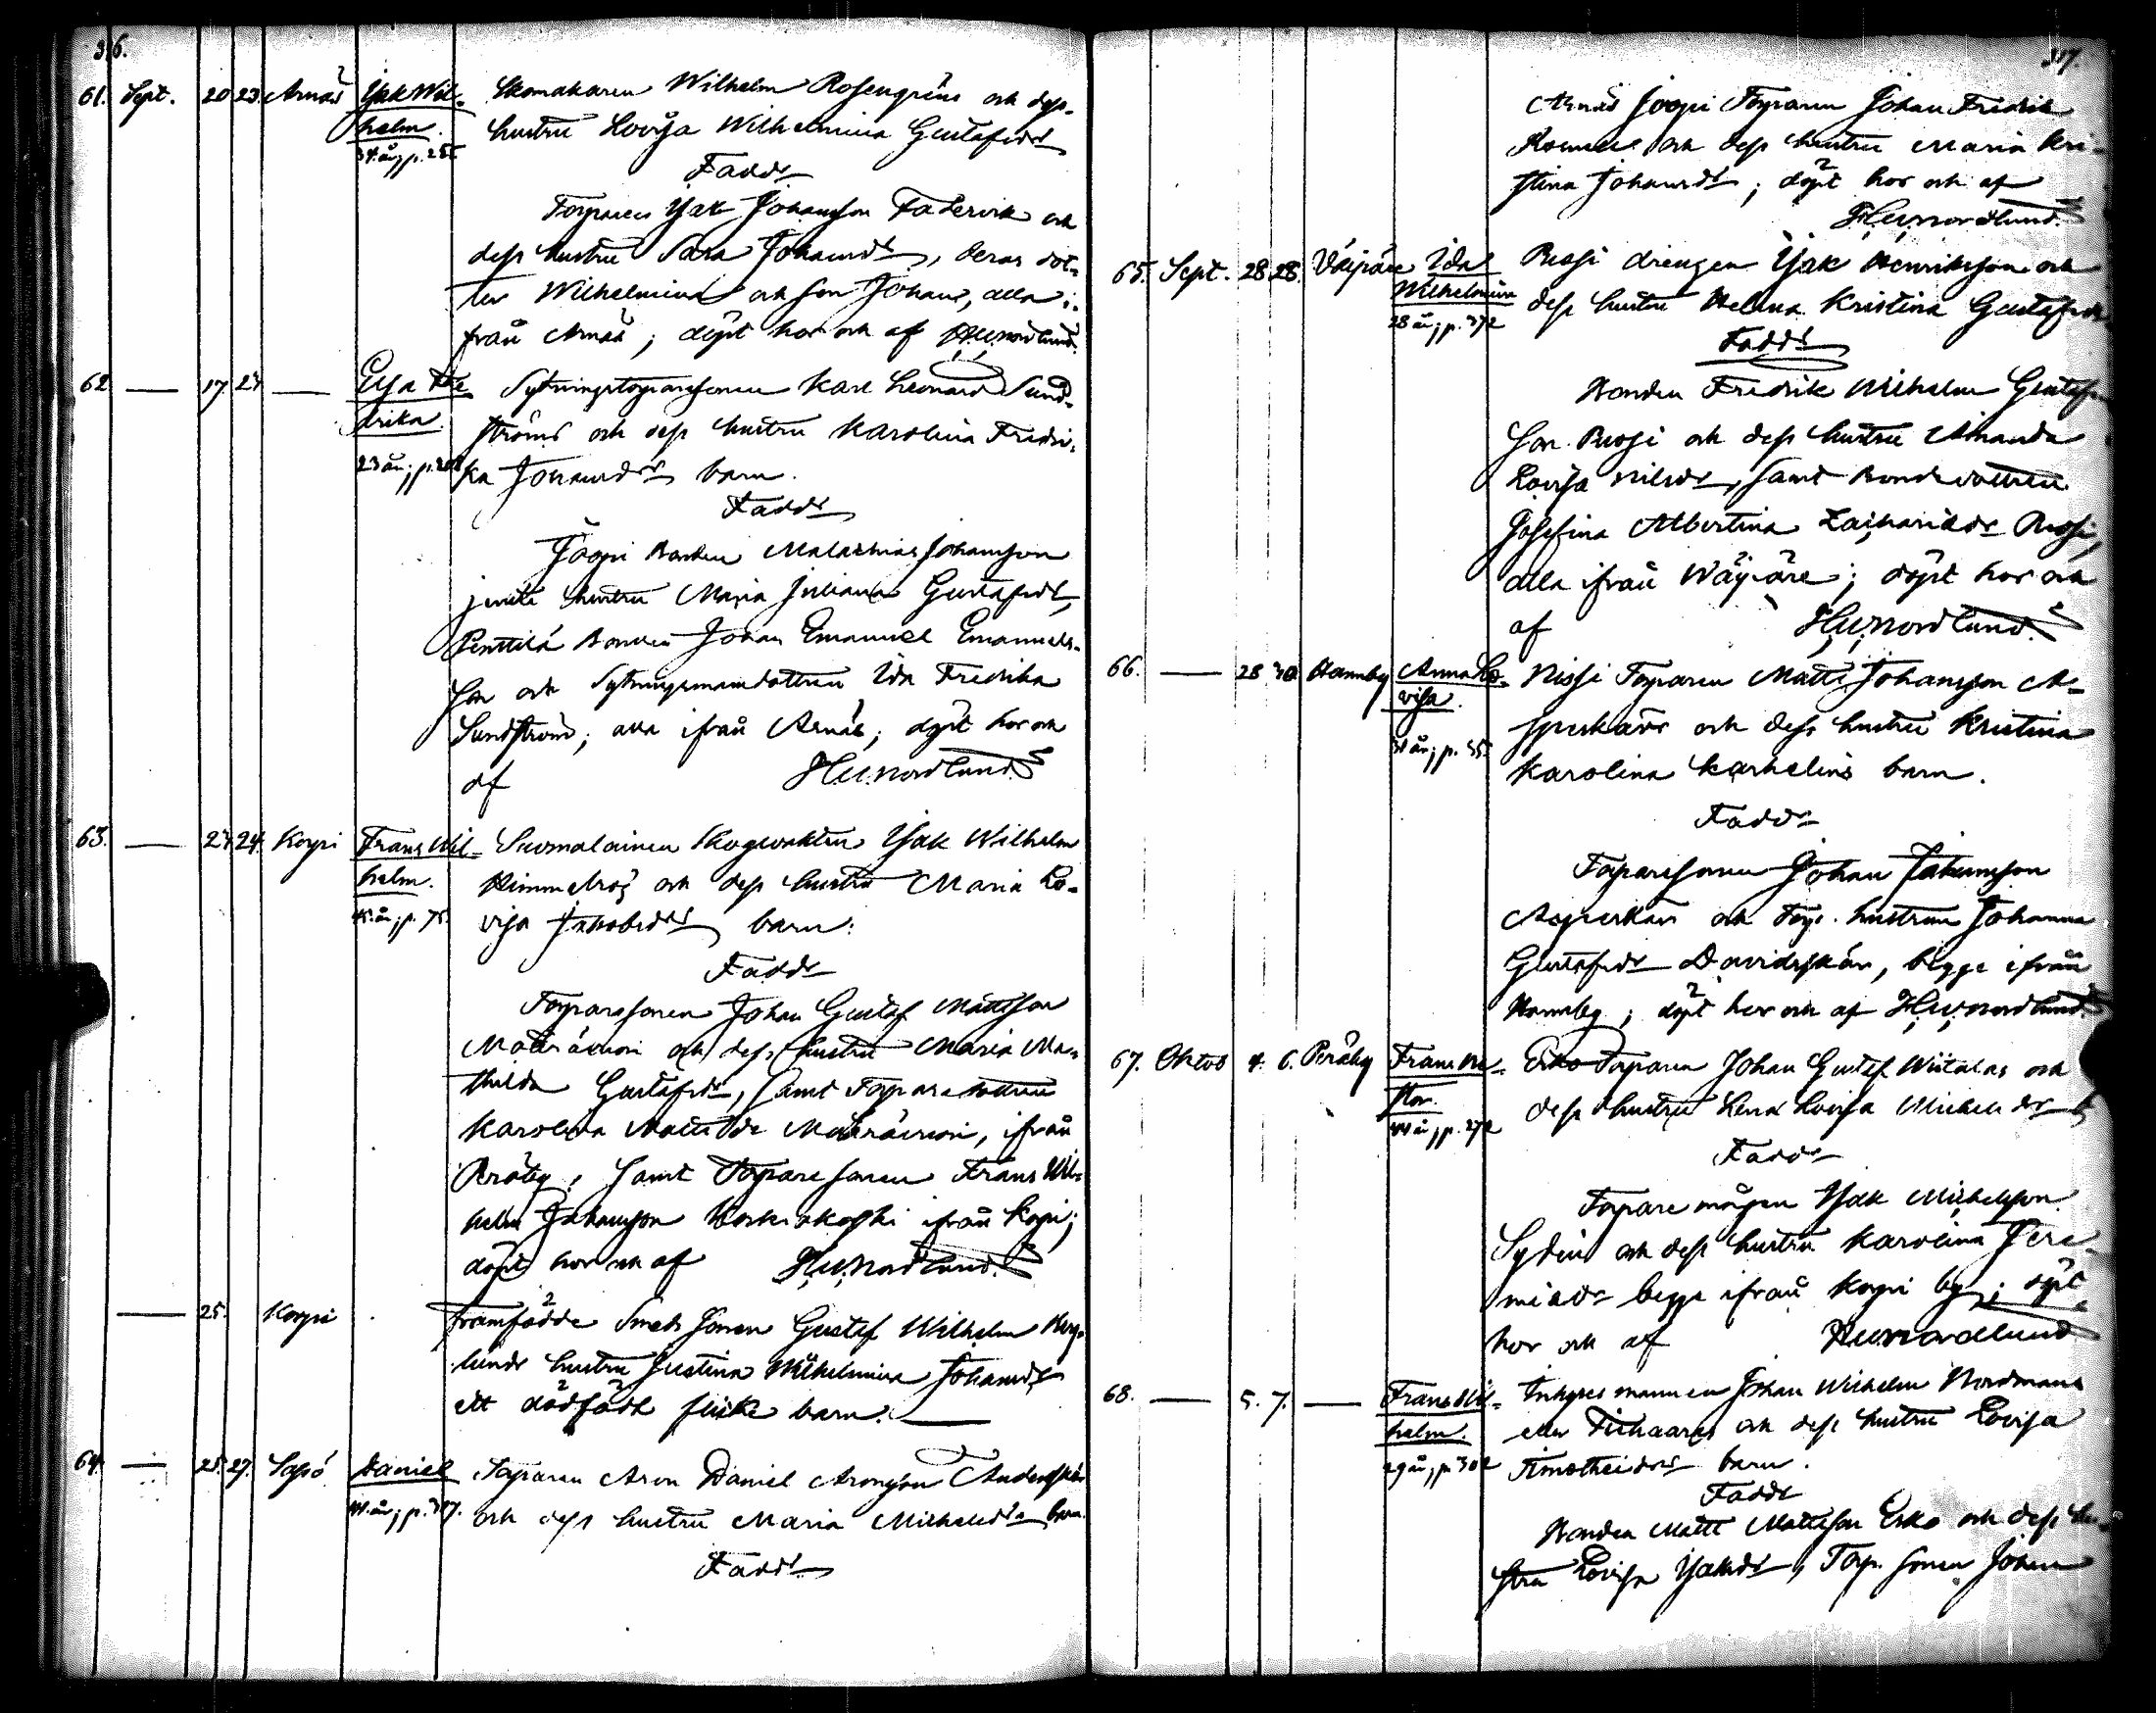 316.
61. Sept. 20 23 Arnäs Isak Wil- Skomakaren Wilhelm Rosengréns och dess
helm. hustru Lovisa Wilhelmina Gustafsdr
34 år; p. 255
Faddr
Torparen Isak Johansson Fadervik och
dess hustru Sara Johansdr, deras dot-
ter Wilhelmina och son Johan, alla i-
från Arnäs; döpt hos och af H.W. Nordlund.
62. — 17. 24. — Eva Fre- Sytningstorparesonen Karl Leonard Sund-
drika. ströms och dess hustru Karolina Fredri-
23 år; p. ka Johansdrs barn.
Faddr
Jaopi Bonden Malakias Johansson
jemte hustru Maria Juliana Gustafsdr,
Penttilä Bonden Johan Emanuel Emanuels-
son och Sytningsmansdottren Ida Fredrika
Sundström; alla ifrån Arnäs; döpt hos och
af H.W. Nordlund.
63. — 23. 24. Korpi Frans Wil- Suomalainen Skogvaktren Isak Wilhelm
helm. Himmelroos och dess hustru Maria Lo-
45 år; p. 75. visa Jakobsdrs barn.
Faddr
Torparesonen Johan Gustaf Mattsson
och dess hustru Maria Ma-
thilda Gustafsdr, samt Torparedottren
Karolina Mathilda ifrån
Peräby, samt Torparesonen Frans Wil-
helm Johansson Koskiakoski ifrån Korpi;
döpt hos och af H.W. Nordlund.
— 25. Korpi framfödde Smeds sonen Gustaf Wilhelm
lunds hustru Justina Wilhelmina Johansdr
ett dödfödt flicke barn. —
64. — 25. 27. Salsö Daniel Torparen Aron Daniel Aronsson Anderskär
44 år; p. 317. och dess hustru Maria Michelsdrs barn.
Faddr
317.
Arnäs Jaopi Torparen Johan Fredrik
och dess hustru Maria Kri-
stina Johansdr; döpt hos och af
H.W. Nordlund.
65. Sept. 28 28. Väipäre Ida Prossi drengen Isak Henriksson och
Wilhelmina dess hustru Helena Kristina Gustafsdr
28 år; p. 372
Faddr
Bonden Fredrik Wilhelm Gustafs-
son Prossi och dess hustru Amanda
Lovisa Nilsdr, samt Bondedottren
Josefina Albertina Zachariasdr Prossi,
alla ifrån Wäipäre; döpt hos och
af H.W. Nordlund.
66. — 28 30. Hannby Anna Lo- Nissi Torparen Matts Johansson A-
visa. spskärs och dess hustru Kristina
31 år; p. 35. Karolina Karhelins barn.
Faddr
Torparesonen Johan Johansson
Aspskär och Torp. hustrun Johanna
Gustafsdr Davidsskär, begge ifrån
Hannby; döpt hos och af H.W. Nordlund
67. Oktob 4. 6. Peräby Frans Ne- Erko Torparen Johan Gustaf Wiitalas och
stor. dess hustru Lena Lovisa Michelsdrs
44 år; p. 272
Faddr
Torpare mågen Isak Michelsson
Sydin och dess hustru Karolina Jere-
miasdr begge ifrån Korpi by; döpt
hos och af H.W. Nordlund
68. — 5. 7. — Frans Wil- Inhyses mannen Johan Wilhelm Nordmans
helm. eller och dess hustru Lovisa
29 år; p. 302 Timotheidrs barn.
Faddr
Bonden Matts Mattsson Erko och dess hu-
stru Lovisa Isaksdr, Torp. sonen Johan